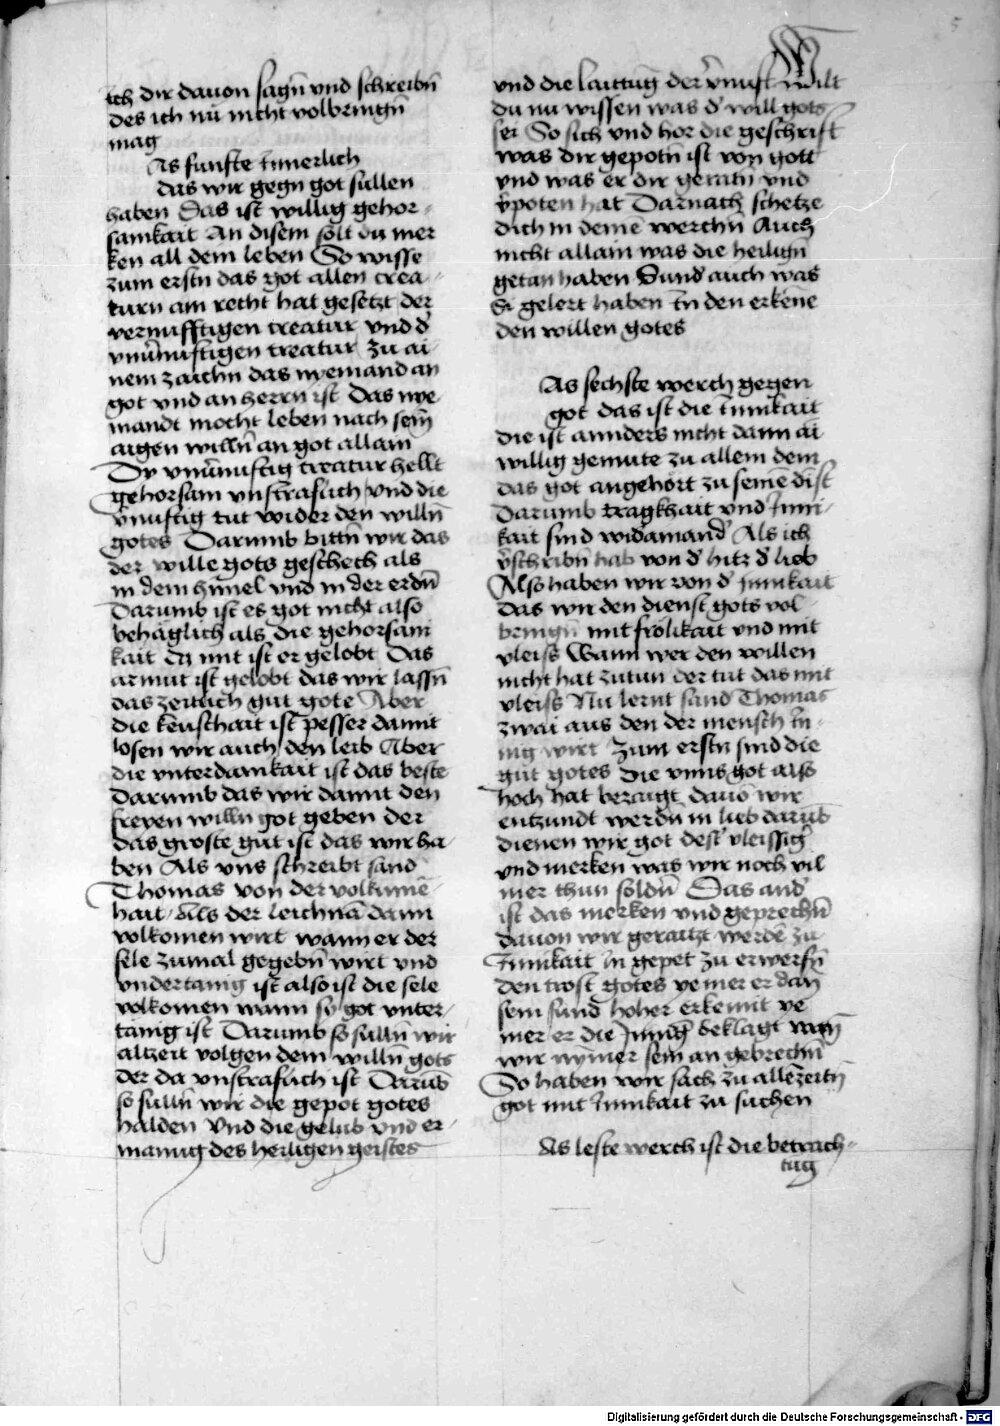 ich dir dauon sagn̄ vnd schreibn̄
des ich nū nicht volbringn̄
mag
As funfte innerlich
das wir gegn got sullen
haben Das ist willig gehor-
samkait An disem solt du mer
ken all dem leben So wisse
zum erstn das got allen crea-
turn am recht hat gesetzt der
vernufftigen creatur vnd d'
vnūnuftigen creatur zu ai
nem zaichn das nyemand an
got vnd an herrn ist Das nye
mandt mocht leben nach sein̄
aigen willn̄ an got allain
Dy vnūnuftig creatur hellt
gehorsam vnstraflich vnd die
v̄nuftig tut wider den willn̄
gotes Darumb bittn̄ wir das
der wille gots geschech als
in dem himel vnd in der erdn̄
Darumb ist es got nicht also
behaglich als die gehorsam
kait da mit ist er gelobt Das
armut ist gelobt das wir lassn̄
das zeitlich gut gote Aber
die keuschait ist pesser damit
losen wir auch den leib Aber
die vnterdamkait ist das beste
Darumb das wir damit den
freyen willn̄ got geben der
das groste gut ist das wir ha-
ben Als vns schreibt sand
Thomas von der volkumē-
hait Als der leichnā dann
volkomen wirt wann er der
sele zumal gegebn̄ wirt vnd
vndertanig ist also ist die sele
volkomen wann sy got vnter-
tanig ist Darumb so sulln̄ wir
altzeit volgen dem willn̄ gots
der da vnstraflich ist Darūb
so sulln̄ wir die gepot gotes
halden Vnd die gelub vnd er-
manung des heiligen geistes
vnd die laittūg der v̄nuft Wilt
du nu wissen was d' will gots
sei So sich vnd hor die geschrift
was dir gepotn̄ ist von gott
vnd was er dir geratn̄ vnd
v̄poten hat Darnach schetze
dich in deinē werchn̄ Auch
nicht allain was die heilign̄
getan haben Sund auch was
si gelert haben in den erkēne
den willen gotes
As sechste werch gegen
got das ist die innikait
die ist annders nicht dann ai
willig gemute zu allem dem
das got angehort zu seinē dīst
Darumb tragkhait vnd Inni-
kait sind widamand' Als ich
v̄schribn̄ hab von d' hitz d' lieb
Also haben wir von d' Innikait
das wir den dienst gots vol-
bringn̄ mit frolikait vnd mit
vleiss Wann wer den willen
nicht hat zutun der tut das mit
vleiss Nu lernt sand Thomas
zwai aus den der mensch in-
nig wirt Zum erstn̄ sind die
gut gotes die vnns got also
hoch hat bezaigt dauō wir
entzundt werdn̄ in lieb darūb
dienen wir got dest vleissig'
vnd merken was wir noch vil
mer thun soldn̄ Das and'
ist das merken vnd geprechn̄
dauon wir geraitzt werdē zu
Innikait in gepet zu erwerfn̄
den trost gotes ye mer er dan̄
sein sund hoher erkennt ye
mer er die Innig' beklagt wan̄
wir nymer sein an gebrechn̄
So haben wir sach zu allezeitn̄
got mit Innikait zu suchen
As leste werch ist die betrach-
tūg
Digitalisierung gefördert durch die Deutsche Forschungsgemeinschaft - DFG